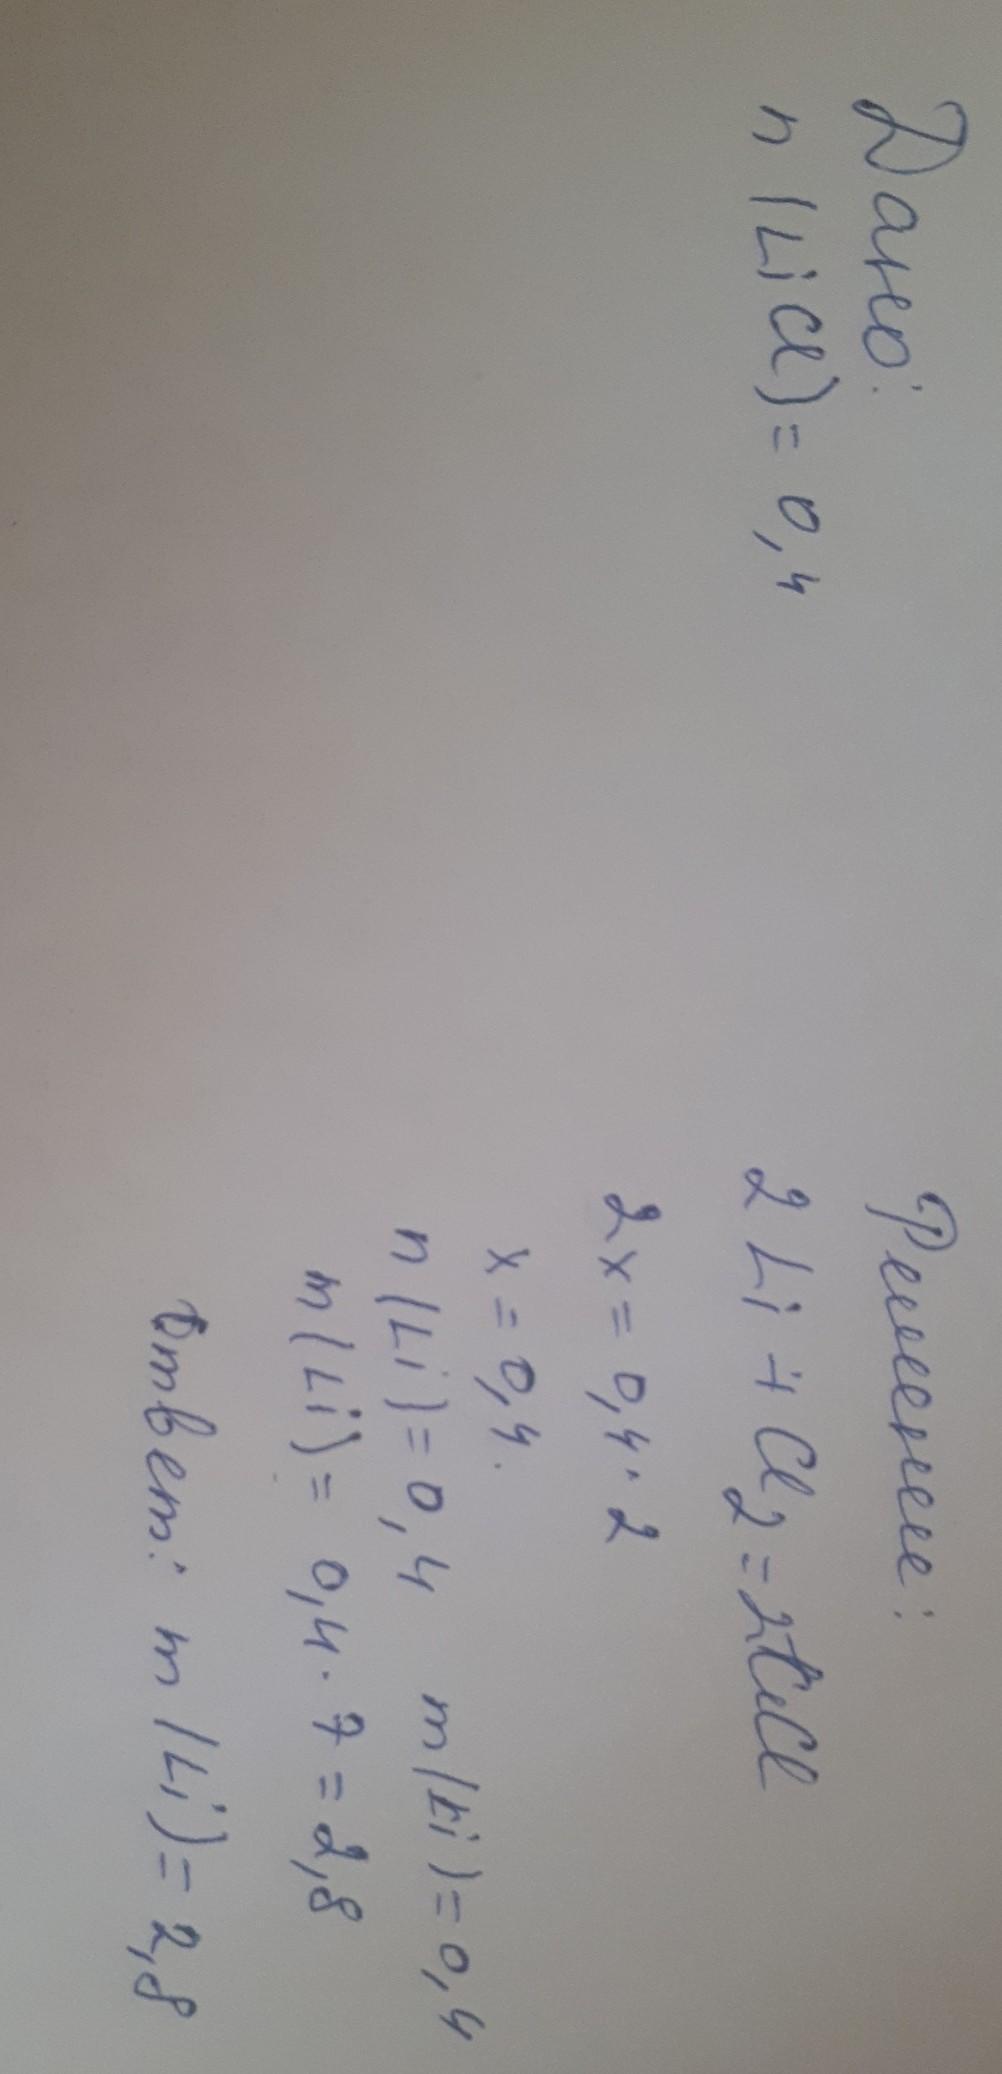 Дано:
n (LiCl) = 0,4
Решение:
2 Li + Cl2 = 2LiCl
2x = 0,4 · 2
x = 0,4.
n (Li) = 0,4 m (Li) = 0,4
m (Li) = 0,4 · 7 = 2,8
Ответ: m (Li) = 2,8